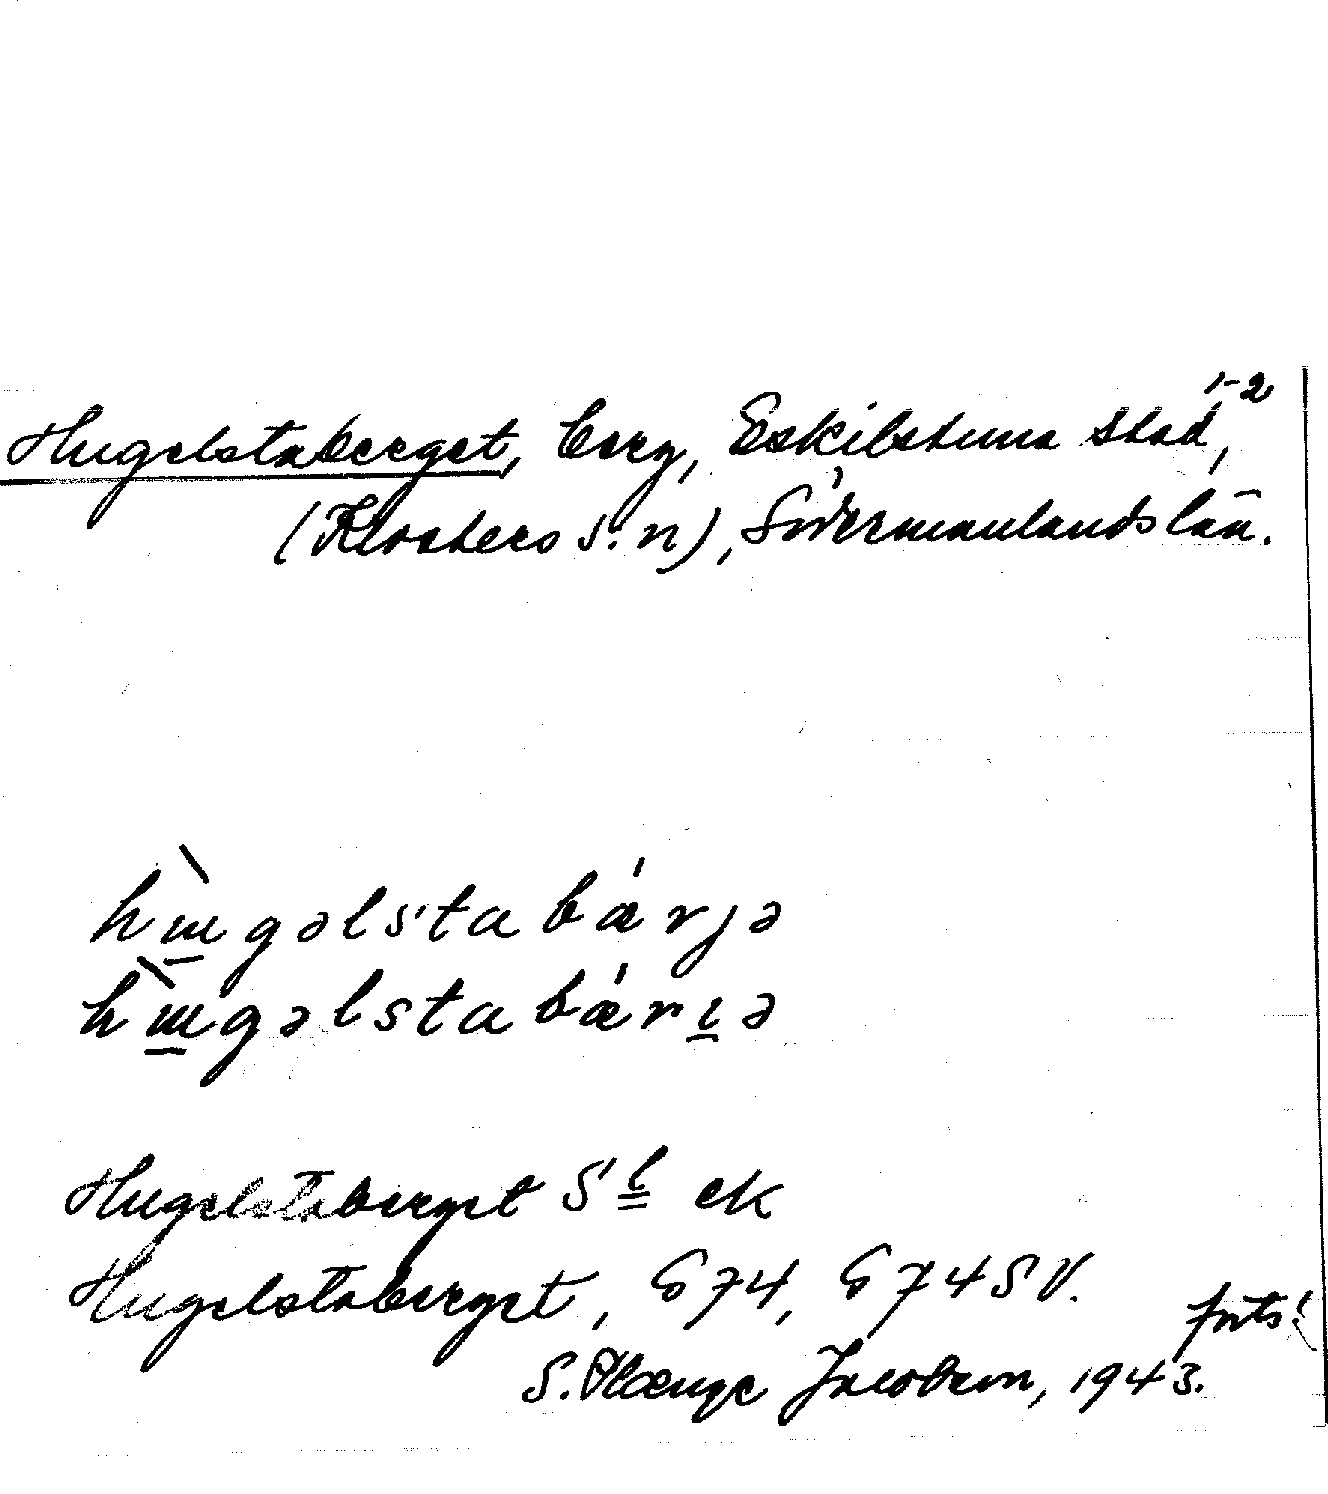 Hugelstaberget, berg, Eskilstuna stad, 1-2
(Klosters s:n), Södermanlands län.
hɯ̲̀gəlstabǽrjə
hɯ̲̀gəlstabǽrı̲ə
Hugelstaberget S l ek
Hugelstaberget, G74, G74SV.
forts!
S. Jacobson, 1943.